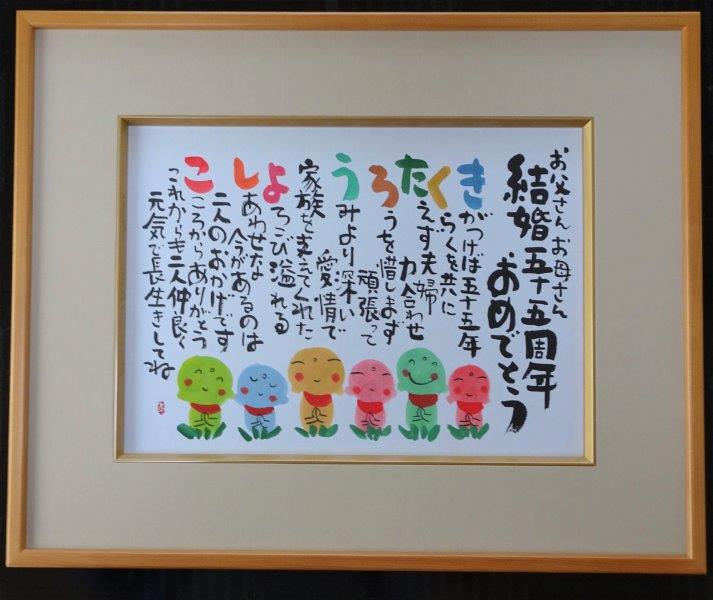 お父さん お母さん
結婚五十五周年
おめでとう
きがつけば五十五年
くらくを共に
たえず夫婦
力合わせ
ろうを惜しまず
頑張って
うみより深い
愛情で
家族を支えてくれた
よろこび溢れる
しあわせな
今があるのは
二人のおかげです
こころからありがとう
これからも二人仲良く
元気で長生きしてね